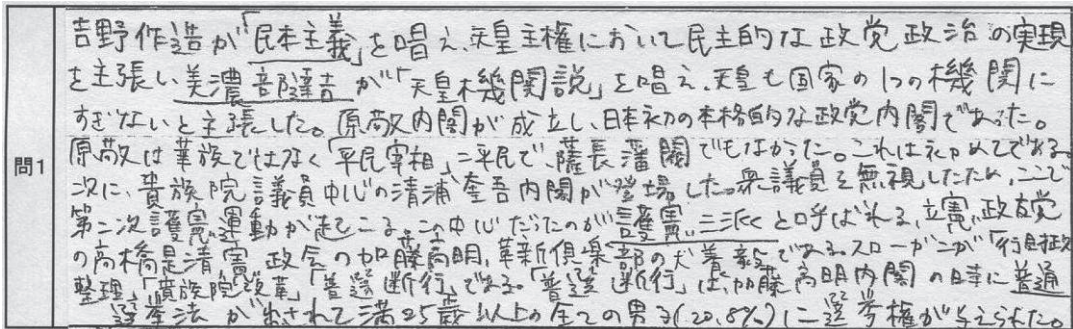 問1
吉野作造が「民本主義」を唱え、天皇主権において民主的な政党政治の実現
を主張し、美濃部達吉が「天皇機関説」を唱え、天皇も国家の1つの機関に
すぎないと主張した。原敬内閣が成立し、日本初の本格的な政党内閣であった。
原敬は華族ではなく「平民宰相」=平民で、薩長藩閥でもなかった。これは初めてである。
次に、貴族院議員中心の清浦奎吾内閣が登場した。衆議員を無視したため、ここで
第二次護憲運動が起こる。この中心だったのが護憲三派と呼ばれる、立憲政友党
の高橋是清、憲政会の加藤高明、革新倶楽部の犬養毅である。スローガンが「行財政
整理」「貴族院改革」「普選断行」である。「普選断行」は、加藤高明内閣の時に普通
選挙法が出されて満25歳以上の全ての男子(20.8%)に選挙権が与えられた。